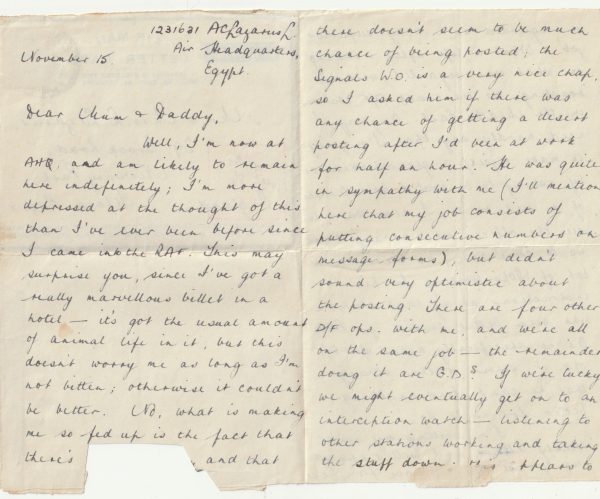 1231631 AC Lazarus L.
Air Headquarters,
Egypt.
November 15.
Dear Mum & Daddy,
Well, I'm now at
AHQ, and am likely to remain
here indefinitely; I'm more
depressed at the thought of this
than I've ever been before since
I came into the RAF. This may
surprise you, since I've got a
really marvellous billet in a
hotel — it's got the usual amount
of animal life in it, but this
doesn't worry me as long as I'm
not bitten; otherwise it couldn't
be better. No, what is making
me so fed up is the fact that
there's and that
there doesn't seem to be much
chance of being posted; the
Signals W.O. is a very nice chap,
so I asked him if there was
any chance of getting a desert
posting after I'd been at work
for half an hour. He was quite
in sympathy with me (I'll mention
here that my job consists of
putting consecutive numbers on
message forms), but didn't
sound very optimistic about
the posting. There are four other
D/F ops. with me, and we're all
on the same job — the remainder
doing it are G.Ds. If we're lucky
we might eventually get on to an
interception watch — listening to
other stations working and taking
the stuff down. to